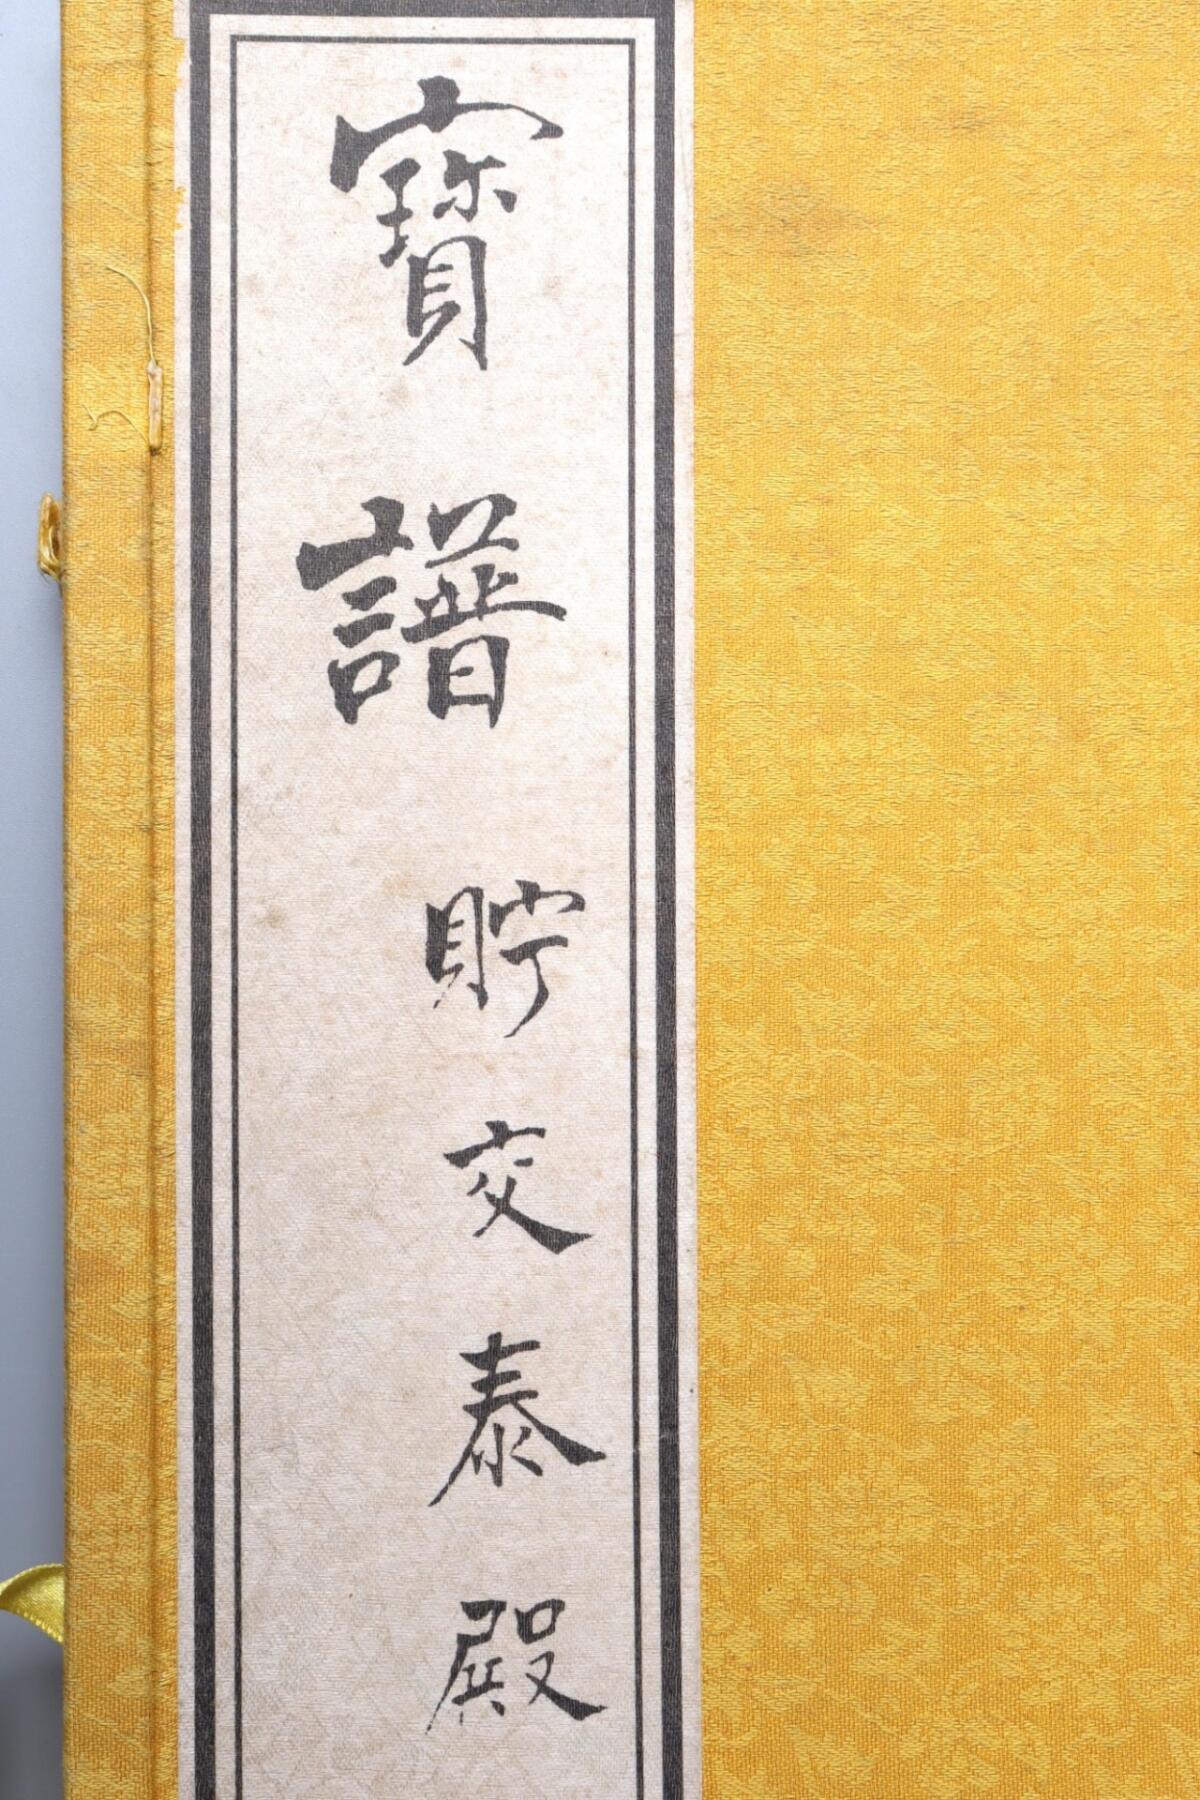 寳譜貯交泰殿